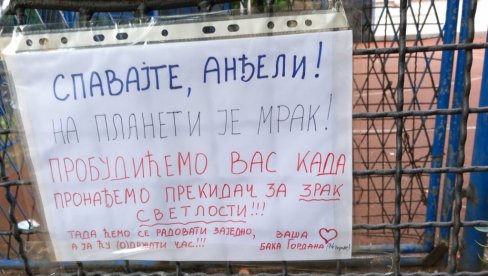 СПАВАЈТЕ, АНЂЕЛИ!
НА ПЛАНЕТИ ЈЕ МРАК!
ПРОБУДИЋЕМО ВАС КАДА
ПРОНАЂЕМО ПРЕКИДАЧ ЗА ЗРАК
СВЕТЛОСТИ!!!
ТАДА ЋЕМО СЕ РАДОВАТИ ЗАЈЕДНО, ВАША
А ЈА ЋУ (О)ДРЖАТИ ЧАС!!! БАКА ГОРДАНА